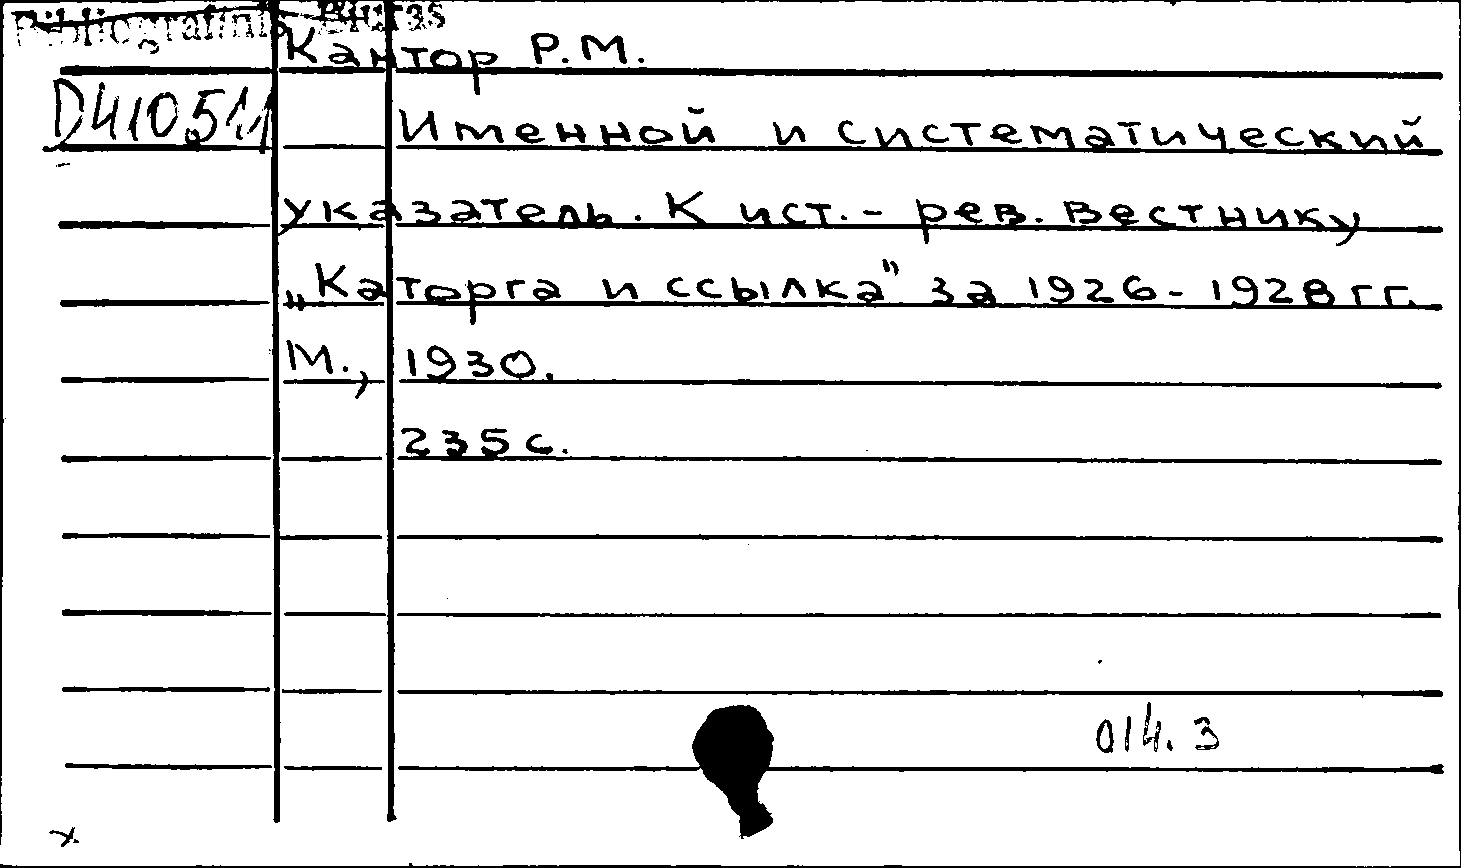 Bibliografinis Biuras
Кантор Р.М.
D410.511
Именной и систематический
указатель. К ист.- рев. Вестнику
„Каторга и ссылка" за 1926-1928 гг.
М., 1930.
235 с.
014.3
x